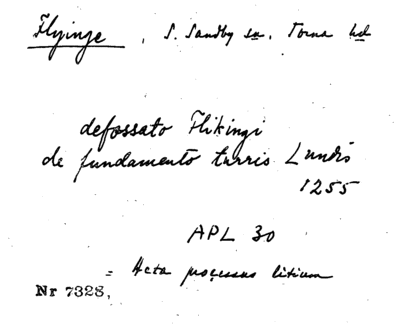 Flyinge, S. Sandby sn, Torna hd
defossato Flikingi
de fundamento turris Lundis
1255
APL 30
= Acta processus litium
Nr 7328,